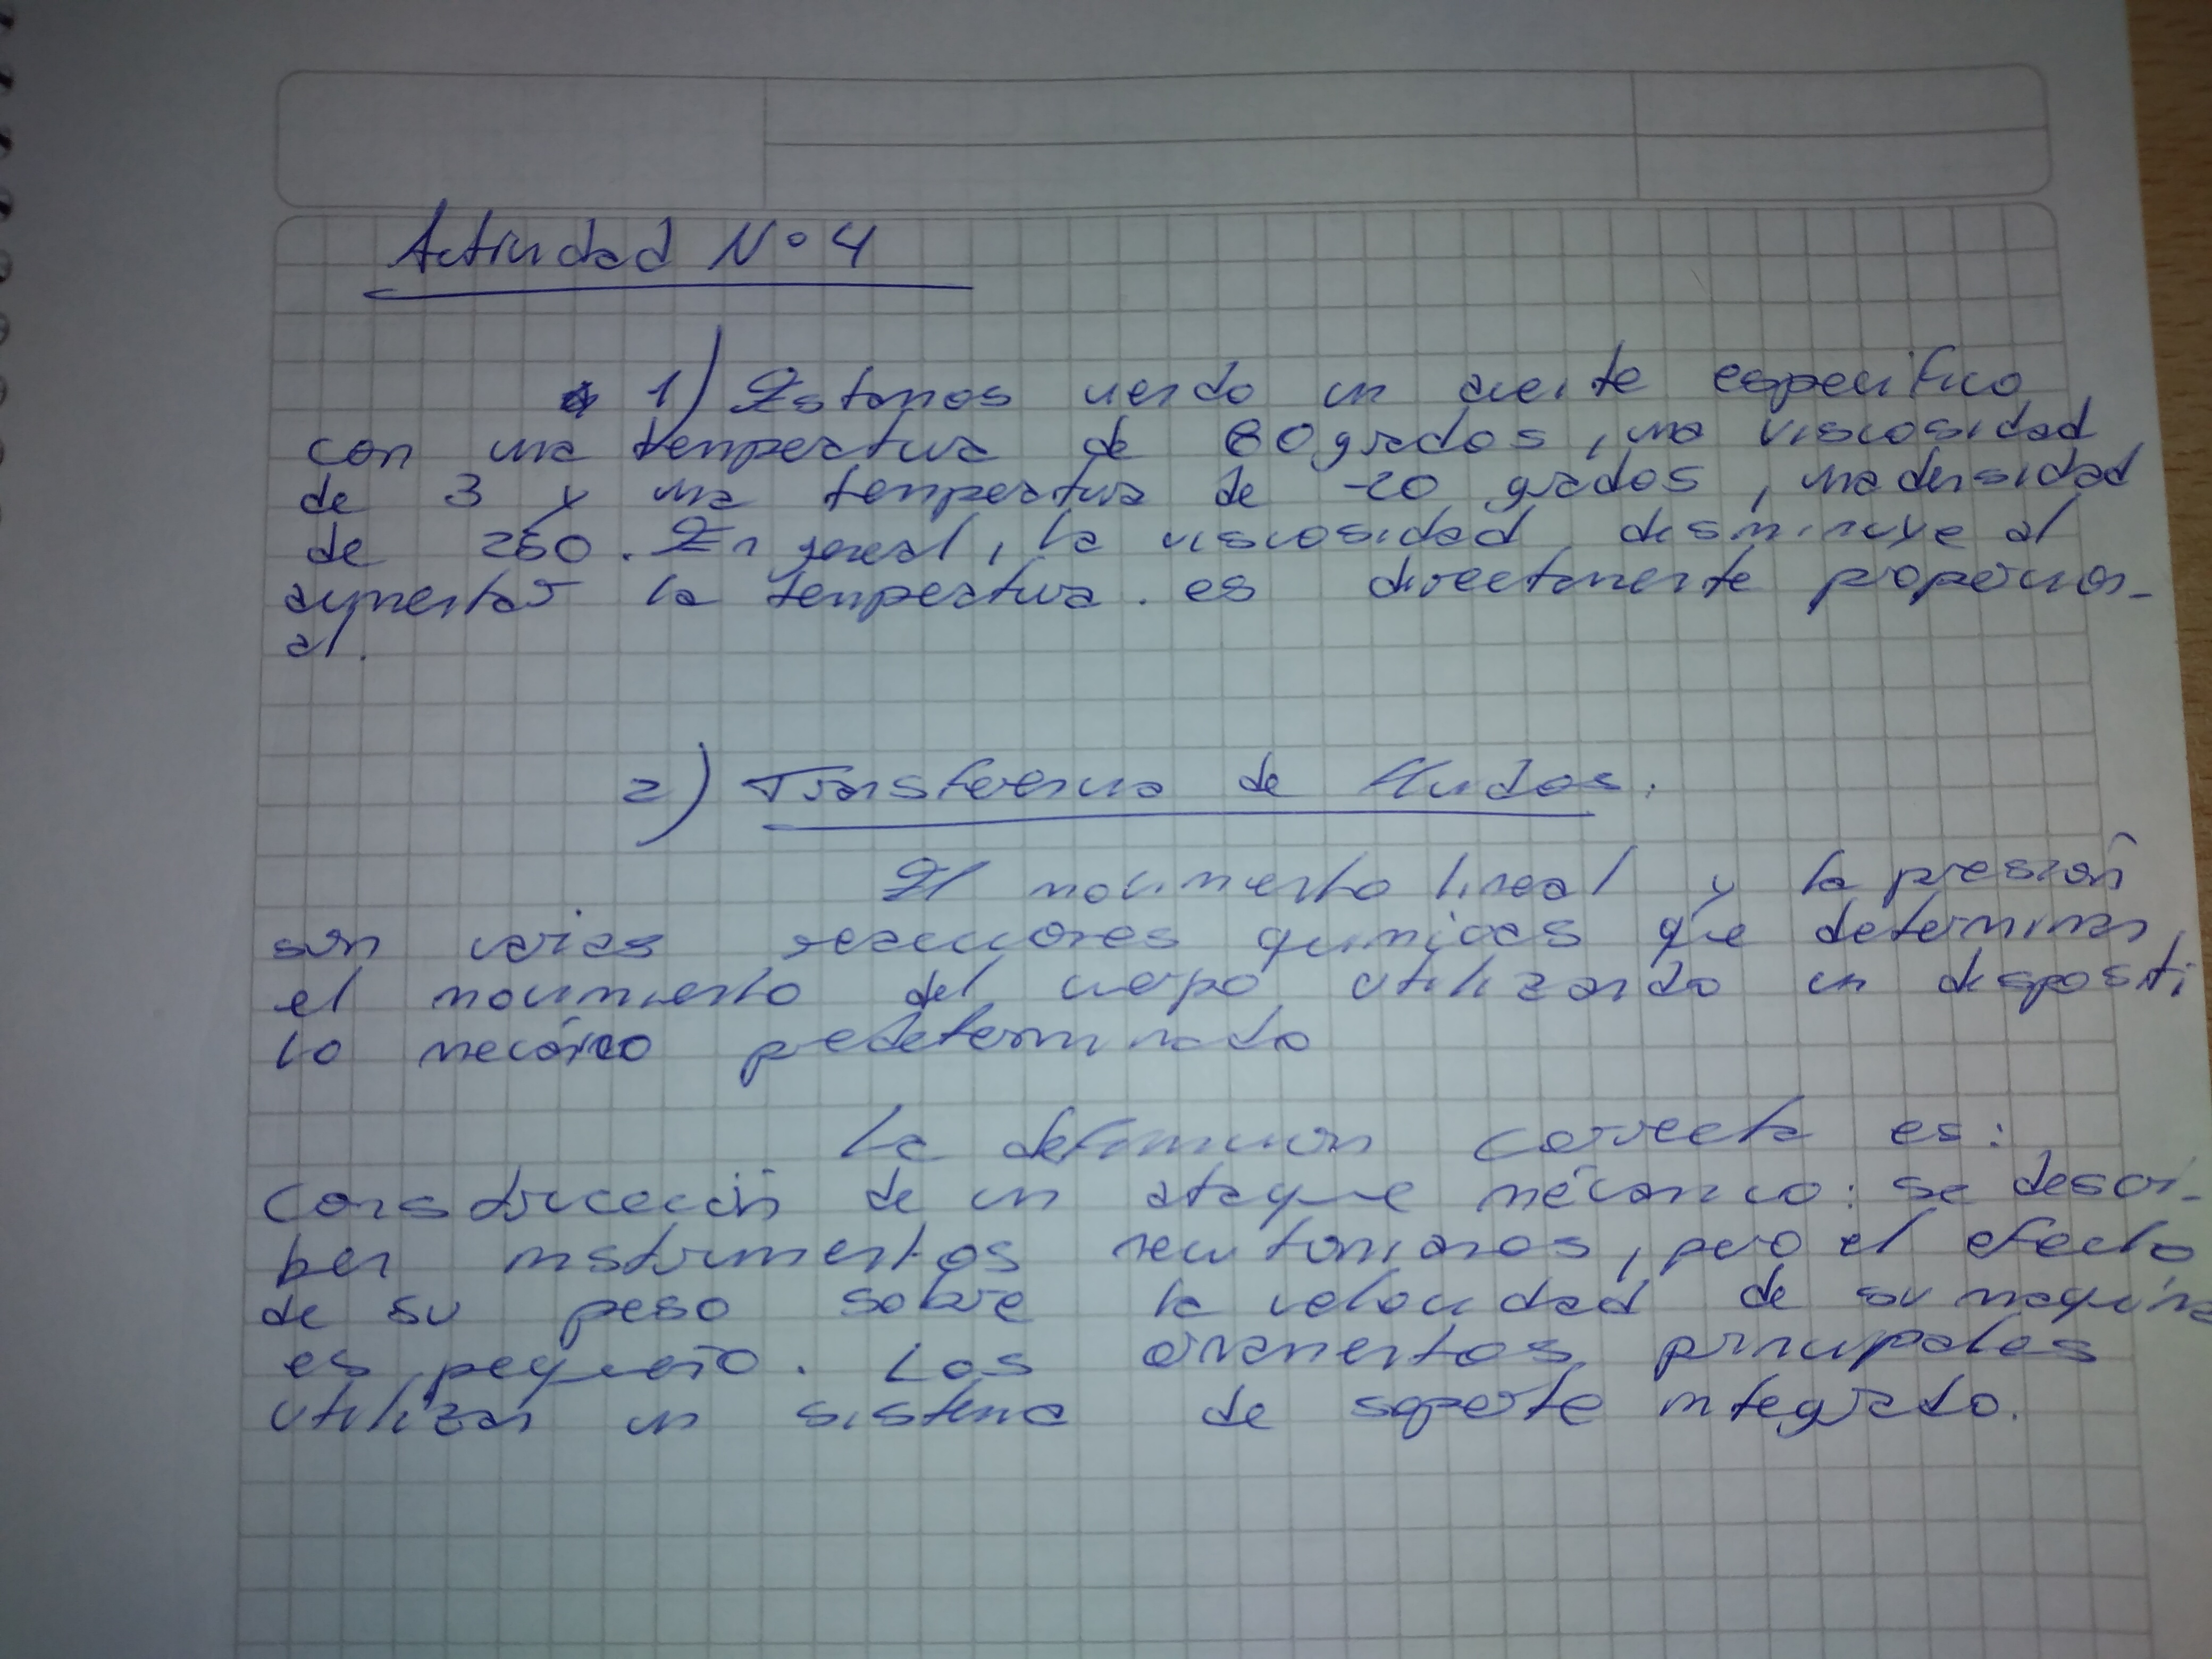 Actividad N° 4
1) Estamos viendo un aceite especifico
con una temperatura de 60 grados, una viscosidad
de 3 y una temperatura de -20 grados, una densidad
de 260. En general, la viscosidad desminuye al
aumentar la temperatura. es directamente proporcion-
al.
2) Transferencia de fluidos.
El movimiento lineal y la presión
son varias reacciones quimicas que determinan
el movimiento del cuerpo utilizando un dispositi
vo mecánico predeterminado
La definicion correcta es:
Construcción de un ataque mécanico: se descri-
ben instrumentos newtonianos, pero el efecto
de su peso sobre la velocidad de su maquina
es pequeño. Los principales
utilizan un sistema de soporte integrado.